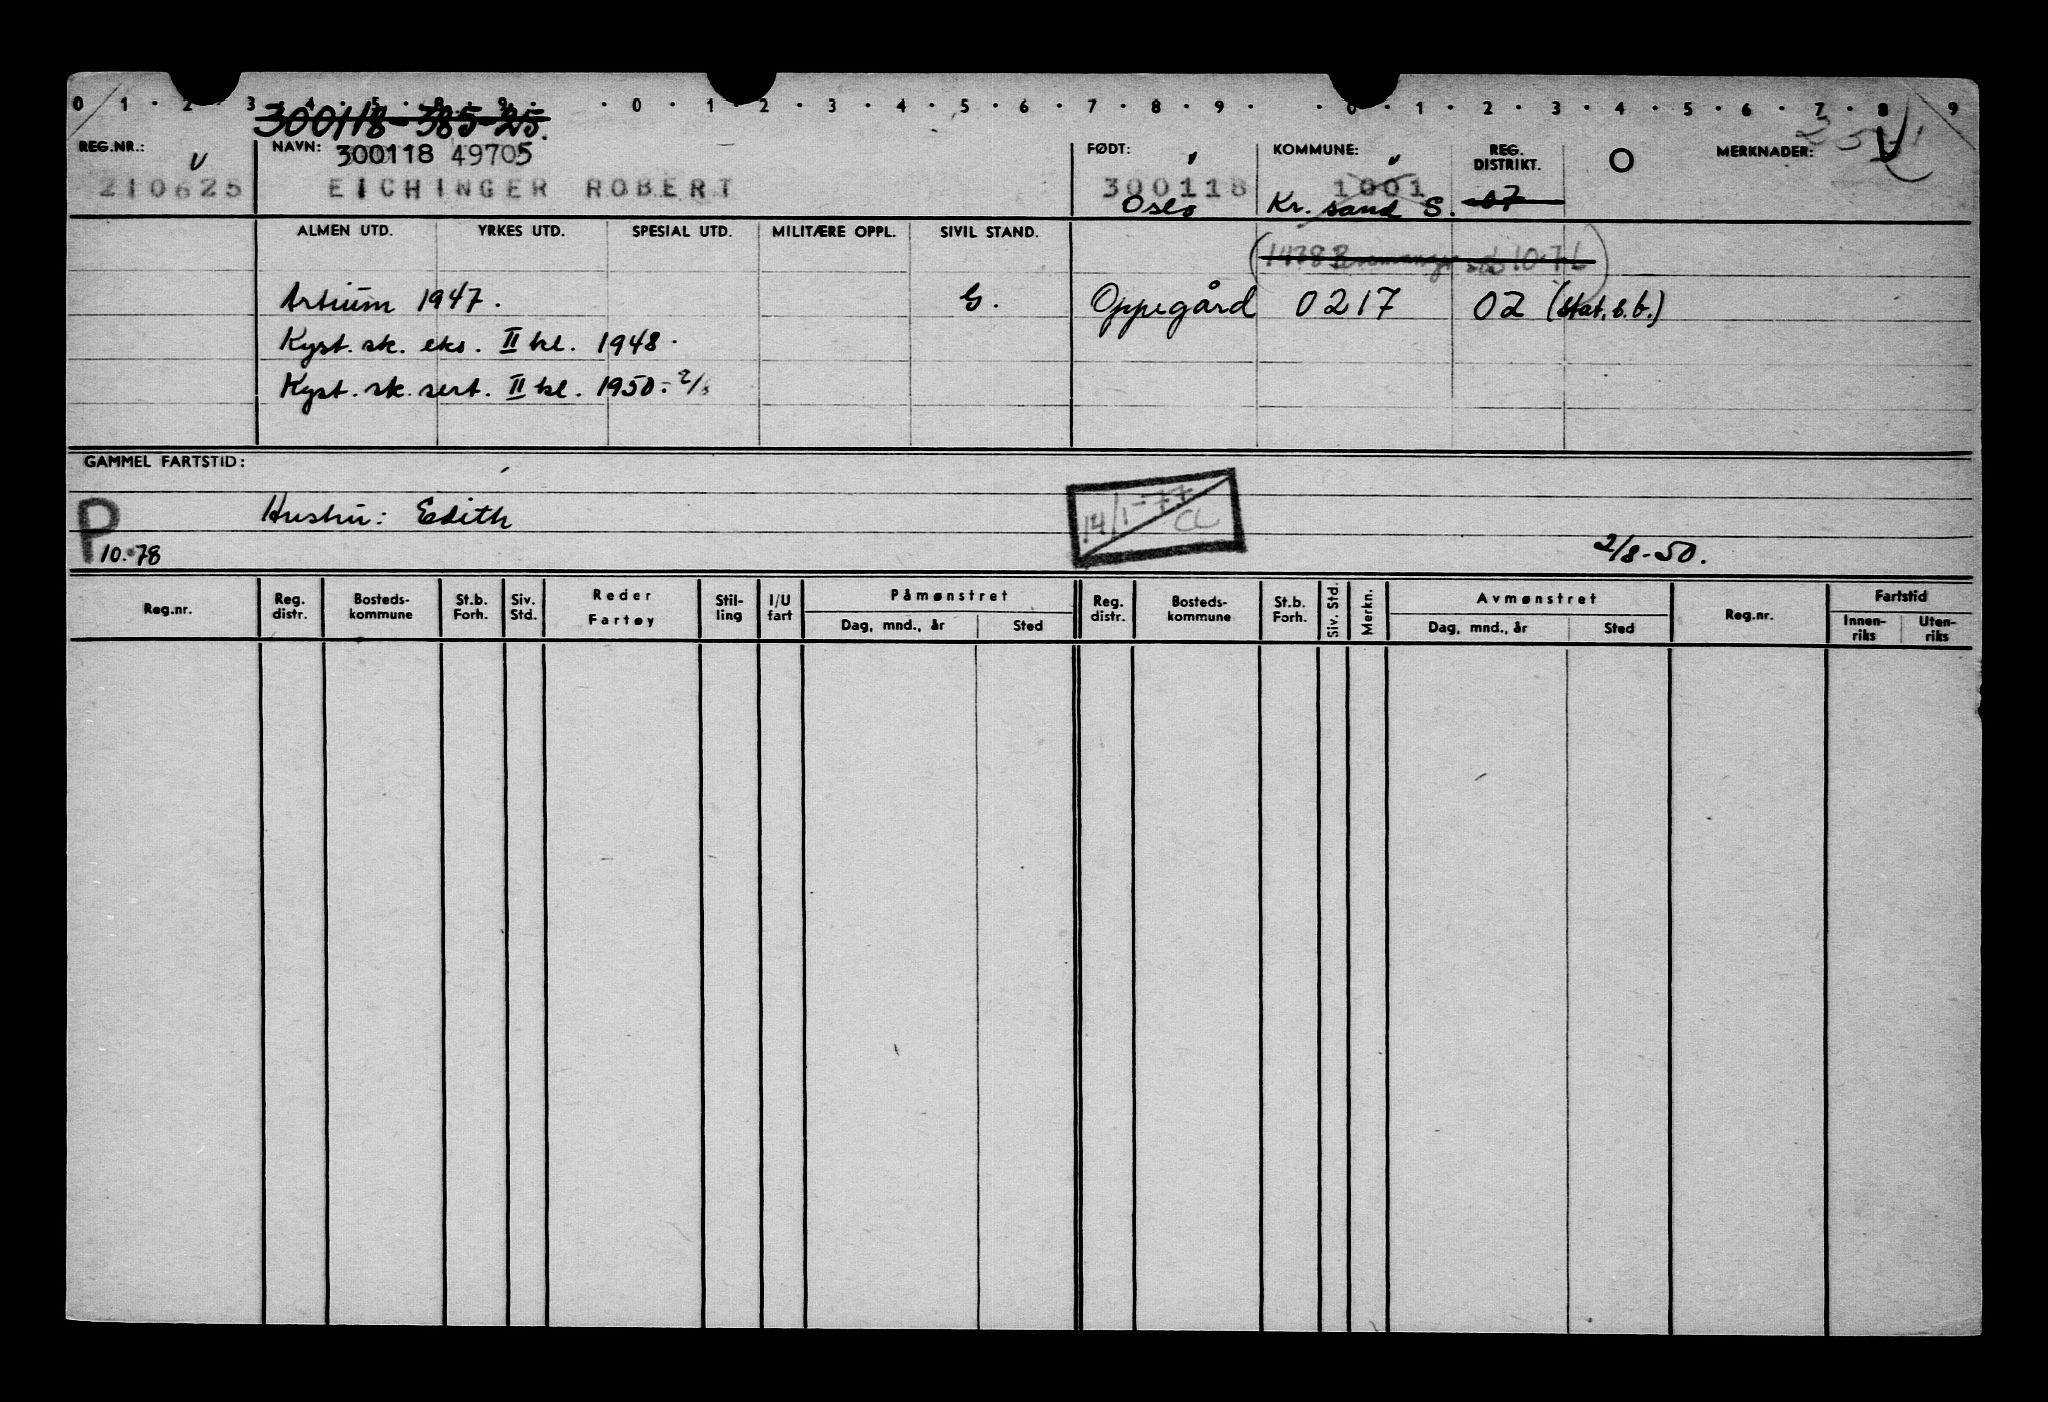 0 · 1 · 2 · 3 · 4 · 5 · 8 · 9 · · 0 · 1 · 2 · 3 · 4 · 5 · 6 · 7 · 8 · 9 · · 0 · 1 · 2 · 3 · 4 · 5 · 6 · 7 · 8 · 9
300118-385-25.
REG.NR.: NAVN: 300118 49705 FØDT: KOMMUNE: REG. DISTRIKT. O MERKNADER:
210625 EICHINGER ROBERT 300118 1001
Oslo Kr. sand S. 07
ALMEN UTD. YRKES UTD. SPESIAL UTD. MILITÆRE OPPL. SIVIL STAND.
Artium 1947. G. Oppegård 0217 02 (stat.s.b.)
Kyst. sk. eks. II kl. 1948.
Kyst. sk. sert. II kl. 1950.
GAMMEL FARTSTID:
P Hustru: Edith 14/1-77 CL
10.78 2/8-50.
Reg.nr. Reg. distr. Bosteds-kommune St.b. Forh. Siv. Std. Reder Fartøy Stil-ling I/U fart Påmønstret Reg. distr. Bosteds-kommune St.b. Forh. Siv. Std. Merkn. Avmønstret Reg.nr. Fartstid
Dag, mnd., år Sted Dag, mnd., år Sted Innen-riks Uten-riks